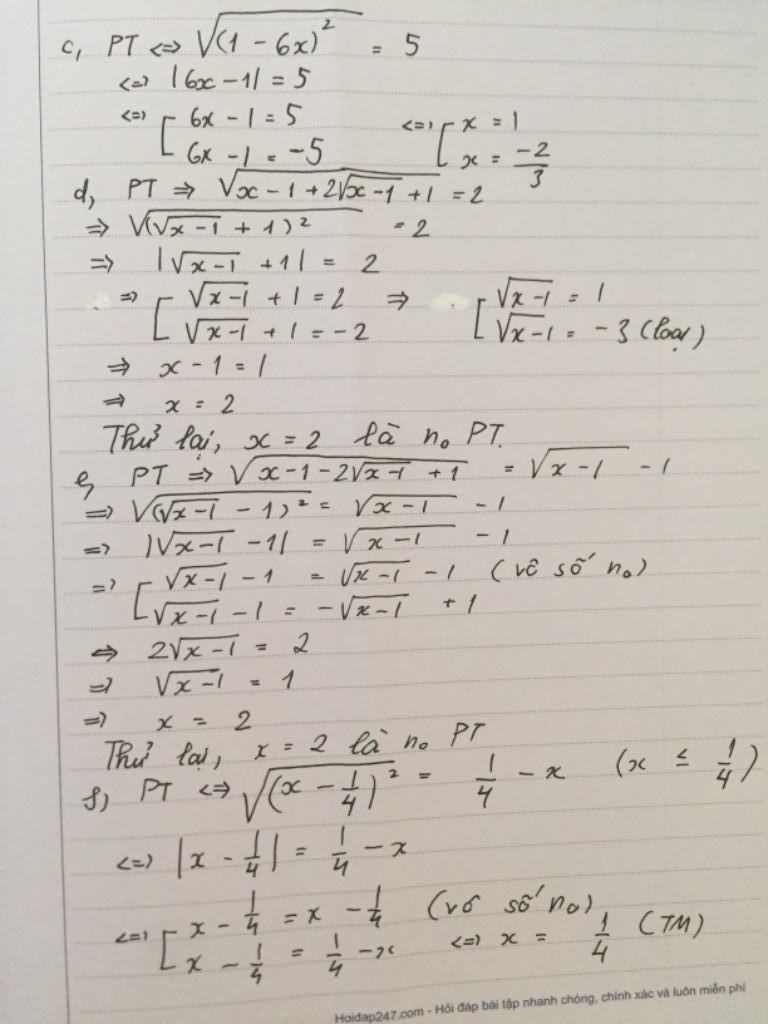 c, PT <=> √(1 - 6x)² = 5
<=> |6x - 1| = 5
<=> [ 6x - 1 = 5 <=> [ x = 1
6x - 1 = -5 x = -2/3
d, PT => √(x - 1 + 2√(x - 1) + 1) = 2
=> √((√(x - 1) + 1)²) = 2
=> |√(x - 1) + 1| = 2
=> [ √(x - 1) + 1 = 2 => [ √(x - 1) = 1
√(x - 1) + 1 = -2 √(x - 1) = -3 (loại)
=> x - 1 = 1
=> x = 2
Thử lại, x = 2 là n₀ PT.
e, PT => √(x - 1 - 2√(x - 1) + 1) = √(x - 1) - 1
=> √((√(x - 1) - 1)²) = √(x - 1) - 1
=> |√(x - 1) - 1| = √(x - 1) - 1
=> [ √(x - 1) - 1 = √(x - 1) - 1 (vô số n₀)
√(x - 1) - 1 = -√(x - 1) + 1
<=> 2√(x - 1) = 2
=> √(x - 1) = 1
=> x = 2
Thử lại, x = 2 là n₀ PT
f) PT <=> √((x - 1/4)²) = 1/4 - x (x ≤ 1/4)
<=> |x - 1/4| = 1/4 - x
<=> [ x - 1/4 = x - 1/4 (vô số n₀)
x - 1/4 = 1/4 - x <=> x = 1/4 (TM)
Hoidap247.com - Hỏi đáp bài tập nhanh chóng, chính xác và luôn miễn phí